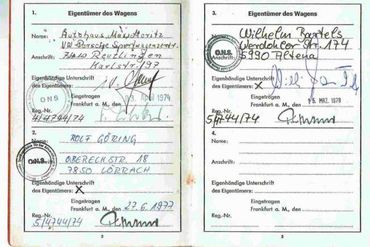 1. Eigentümer des Wagens
Name: Autohaus Max Moritz
VW Porsche Sportwagenzentr.
7410 Reutlingen
Karlstr. 197
O.N.S.
Eigenhändige Unterschrift
des Eigentümers:
Eingetragen
Frankfurt a. M., den 1974
Reg.-Nr.
5/4744/74
2.
Name: ROLF GÖRING
OBERECKSTR. 18
7850 LÖRRACH
O.N.S.
Eigenhändige Unterschrift
des Eigentümers: X
Eingetragen
Frankfurt a. M., den 27.6.1977
Reg.-Nr.
5/4744/74
2
3. Eigentümer des Wagens
Name: Wilhelm Bartels
Werdohler Str. 174
5990 Altena
O.N.S.
Eigenhändige Unterschrift
des Eigentümers: X
Eingetragen
Frankfurt a. M., den 15. MRZ. 1978
Reg.-Nr.
5/4744/74
4.
Name:
Eigenhändige Unterschrift
des Eigentümers:
Eingetragen
Frankfurt a. M., den
Reg.-Nr.
3